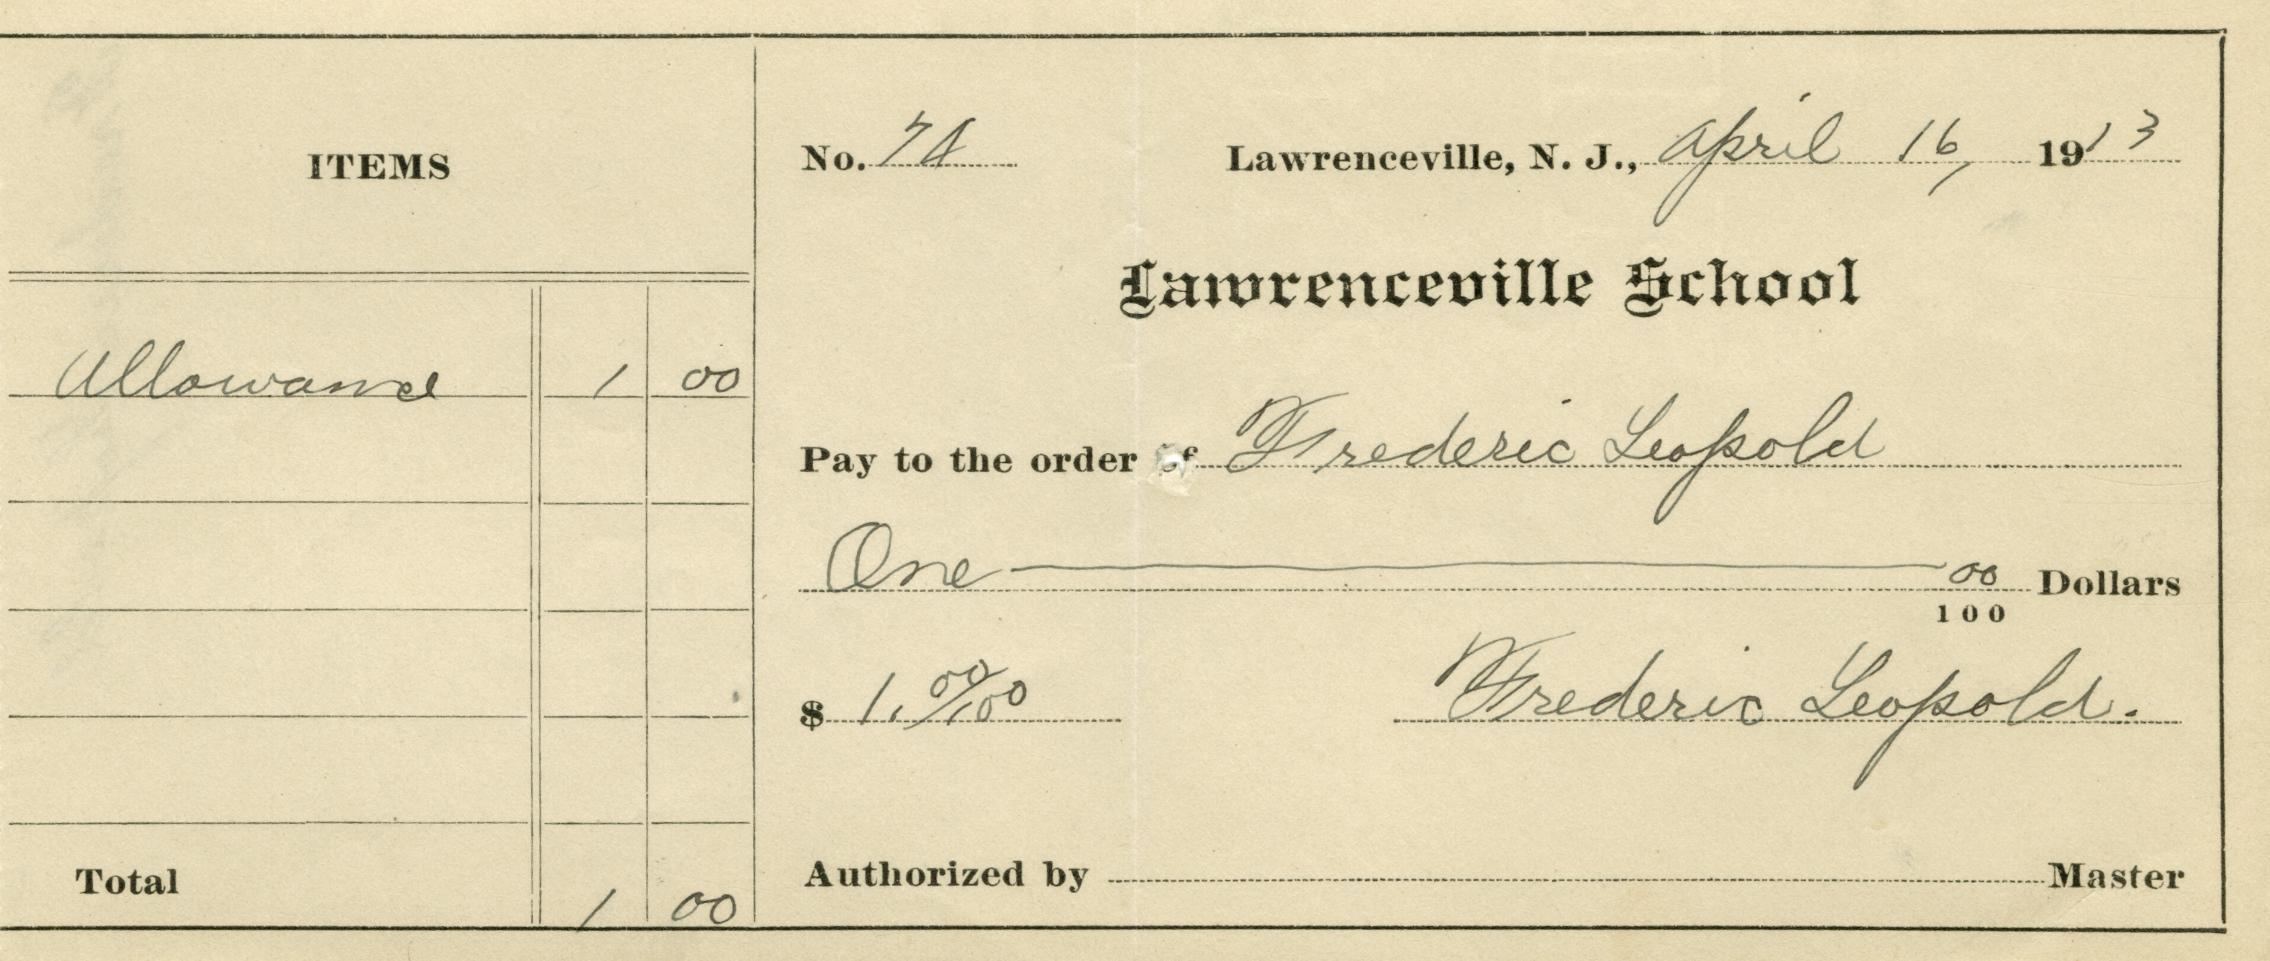 ITEMS
Allowance 1 00
Total 1 00
No. 74 Lawrenceville, N. J., April 16, 1913
Lawrenceville School
Pay to the order of Frederic Leopold
One 00/100 Dollars
$ 1. 00/100 Frederic Leopold.
Authorized by Master